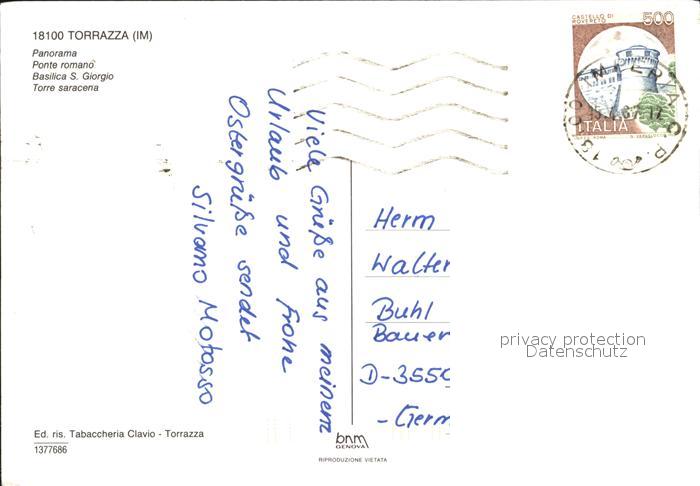 18100 TORRAZZA (IM)
Panorama
Ponte romano
Basilica S. Giorgio
Torre saracena
CASTELLO DI
ROVERETO
500
ITALIA
Viele Grüße aus meinem
Urlaub und frohe
Ostergrüße sendet
Silvano Motosso
Herrn
Walter
Buhl
Bauer
D-3550
- Germ
privacy protection
Datenschutz
Ed. ris. Tabaccheria Clavio - Torrazza
1377686
bnm
GENOVA
RIPRODUZIONE VIETATA